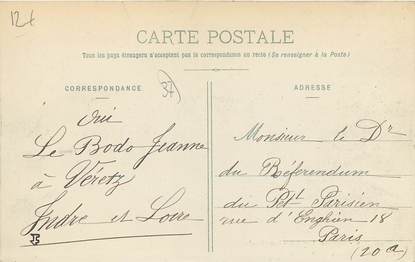 12 €
CARTE POSTALE
Tous les pays étrangers n'acceptent pas la correspondance au recto (Se renseigner à la Poste)
CORRESPONDANCE
37
ADRESSE
Oui
Le Bodo Jeanne
à Véretz
Indre et Loire
Monsieur le Dr
du Référendum
du Petit Parisien
rue d'Enghien 18
Paris
(20a)